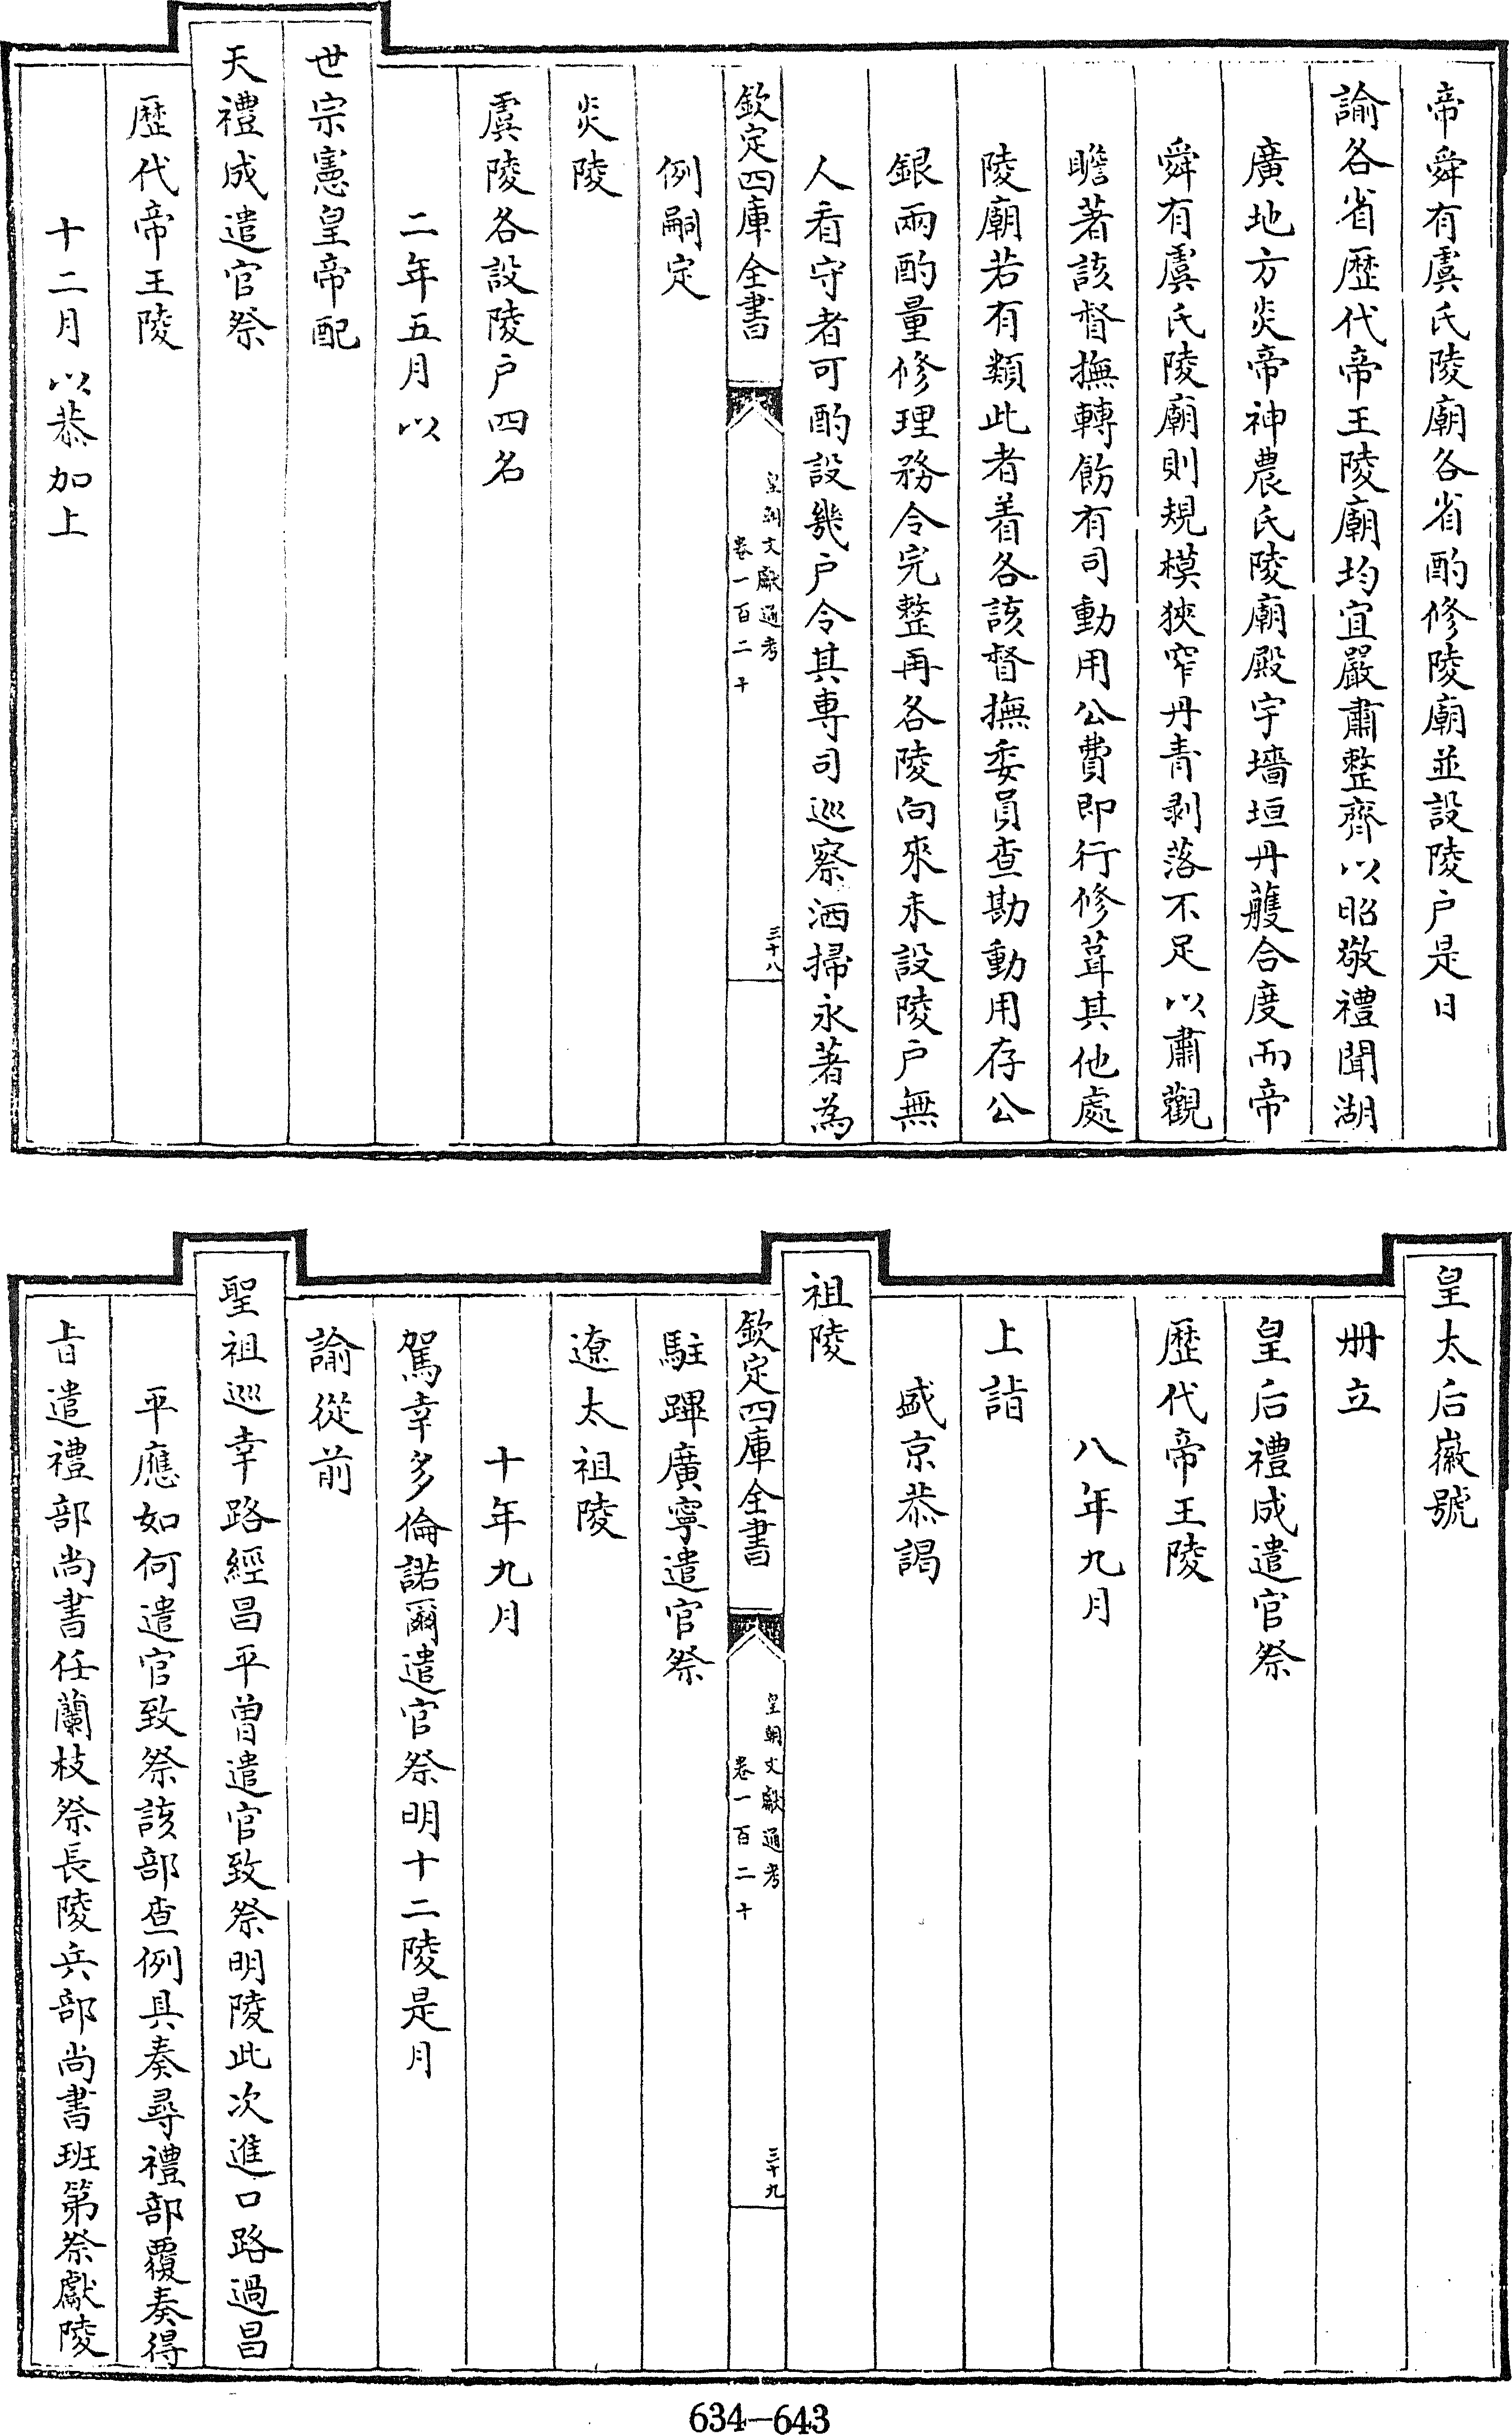 帝舜有虞氏陵廟各省酌修陵廟並設陵户是日
諭各省歴代帝王陵廟均宜嚴肅整齊以昭敬禮聞湖
廣地方炎帝神農氏陵廟殿宇墻垣丹雘合度而帝
舜有虞氏陵廟則規模狹窄丹青剥落不足以肅觀
瞻著該督撫轉飭有司動用公費即行修葺其他處
陵廟若有類此者着各該督撫委員查勘動用存公
銀兩酌量修理務令完整再各陵向來未設陵户無
人看守者可酌設幾户令其專司巡察洒掃永著為
欽定四庫全書
皇朝文獻通考
卷一百二十
三十八
例嗣定
炎陵
虞陵各設陵户四名
二年五月以
世宗憲皇帝配
天禮成遣官祭
歴代帝王陵
十二月以恭加上
皇太后徽號
冊立
皇后禮成遣官祭
歴代帝王陵
八年九月
上詣
盛京恭謁
祖陵
欽定四庫全書
皇朝文獻通考
卷一百二十
三十九
駐蹕廣寧遣官祭
遼太祖陵
十年九月
駕幸多倫諾爾遣官祭明十二陵是月
諭從前
聖祖巡幸路經昌平曽遣官致祭明陵此次進口路過昌
平應如何遣官致祭該部查例具奏尋禮部覆奏得
旨遣禮部尚書任蘭枝祭長陵兵部尚書班第祭獻陵
634-643